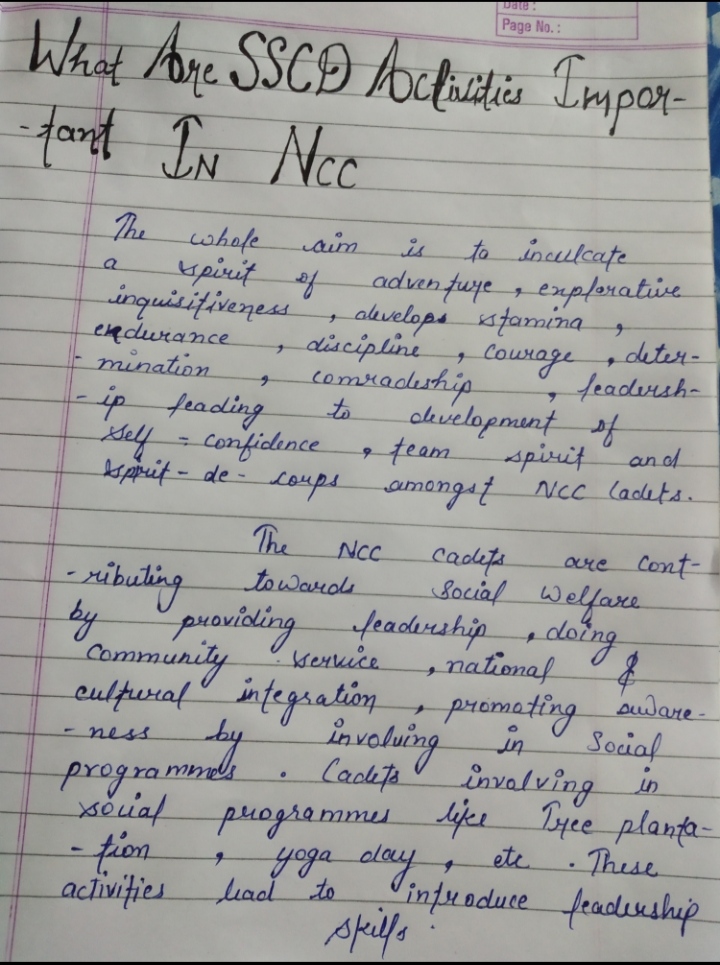 Date :
Page No. :
What Are SSCD Activities Impor-
-tant IN NCC
The whole aim is to inculcate
a spirit of adventure, explorative
inquisitiveness, develops stamina,
endurance, discipline, courage, deter-
- mination, comradeship, leadersh-
- ip leading to development of
self = confidence, team spirit and
spirit - de - coups amongst NCC Cadets.
The NCC cadets are cont-
- ributing towards Social Welfare
by providing leadership, doing
community service, national &
cultural integration, promoting aware-
- ness by involving in Social
programmes. Cadets involving in
social programmes like Tree planta-
- tion, yoga day, etc. These
activities lead to introduce leadership
skills.